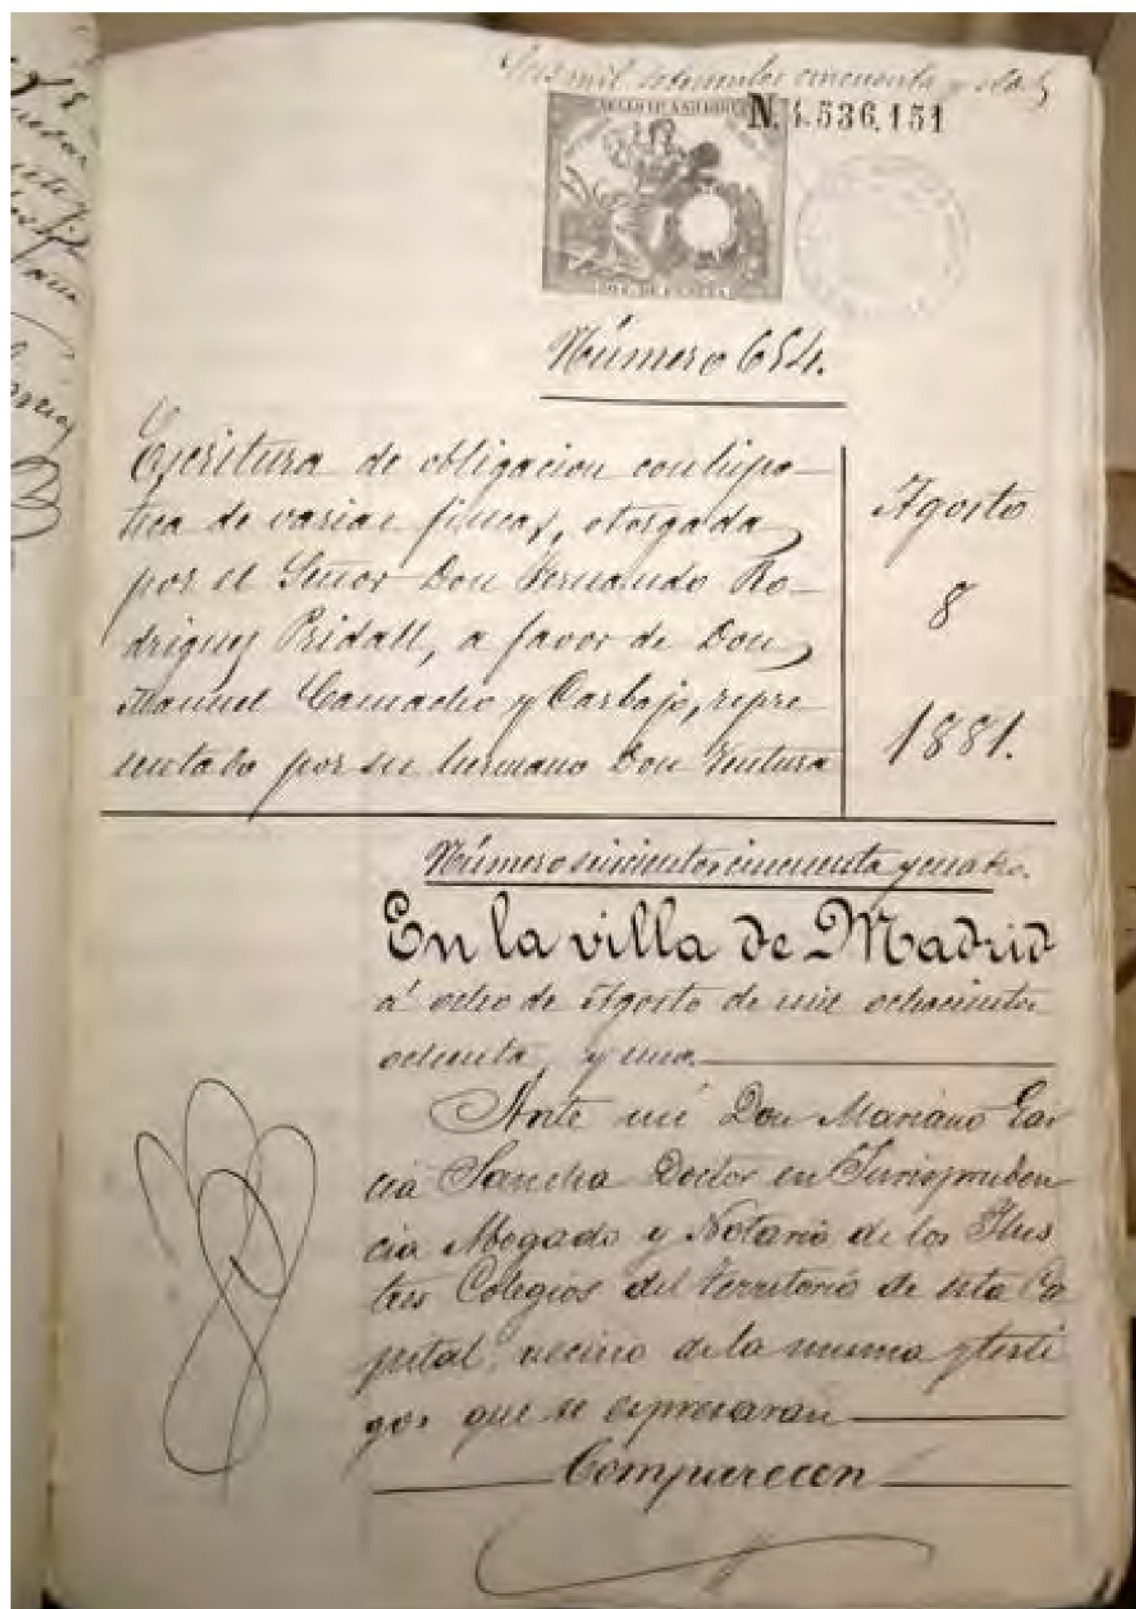 Seis mil setecientos cincuenta y
SELLO
N. 536.151
Número 654.
Escritura de obligacion con hipo-
teca de varias fincas, otorgada
por el Señor Don Fernando Ro-
driguez Pridall, a favor de Don
Manuel Camacho y Carbajo, repre
sentado por su hermano Don Ventura
Agosto
8
1881.
Número seiscientos cincuenta y cuatro.
En la villa de Madrid
á ocho de Agosto de mil ochocientos
ochenta y uno.
Ante mí Don Mariano Gar
cia Sancha Doctor en Jurispruden
cia Abogado y Notario de los Ilus
tres Colegios del Territorio de esta Ca
pital, vecino de la misma y testi
gos que se espresarán
Comparecen